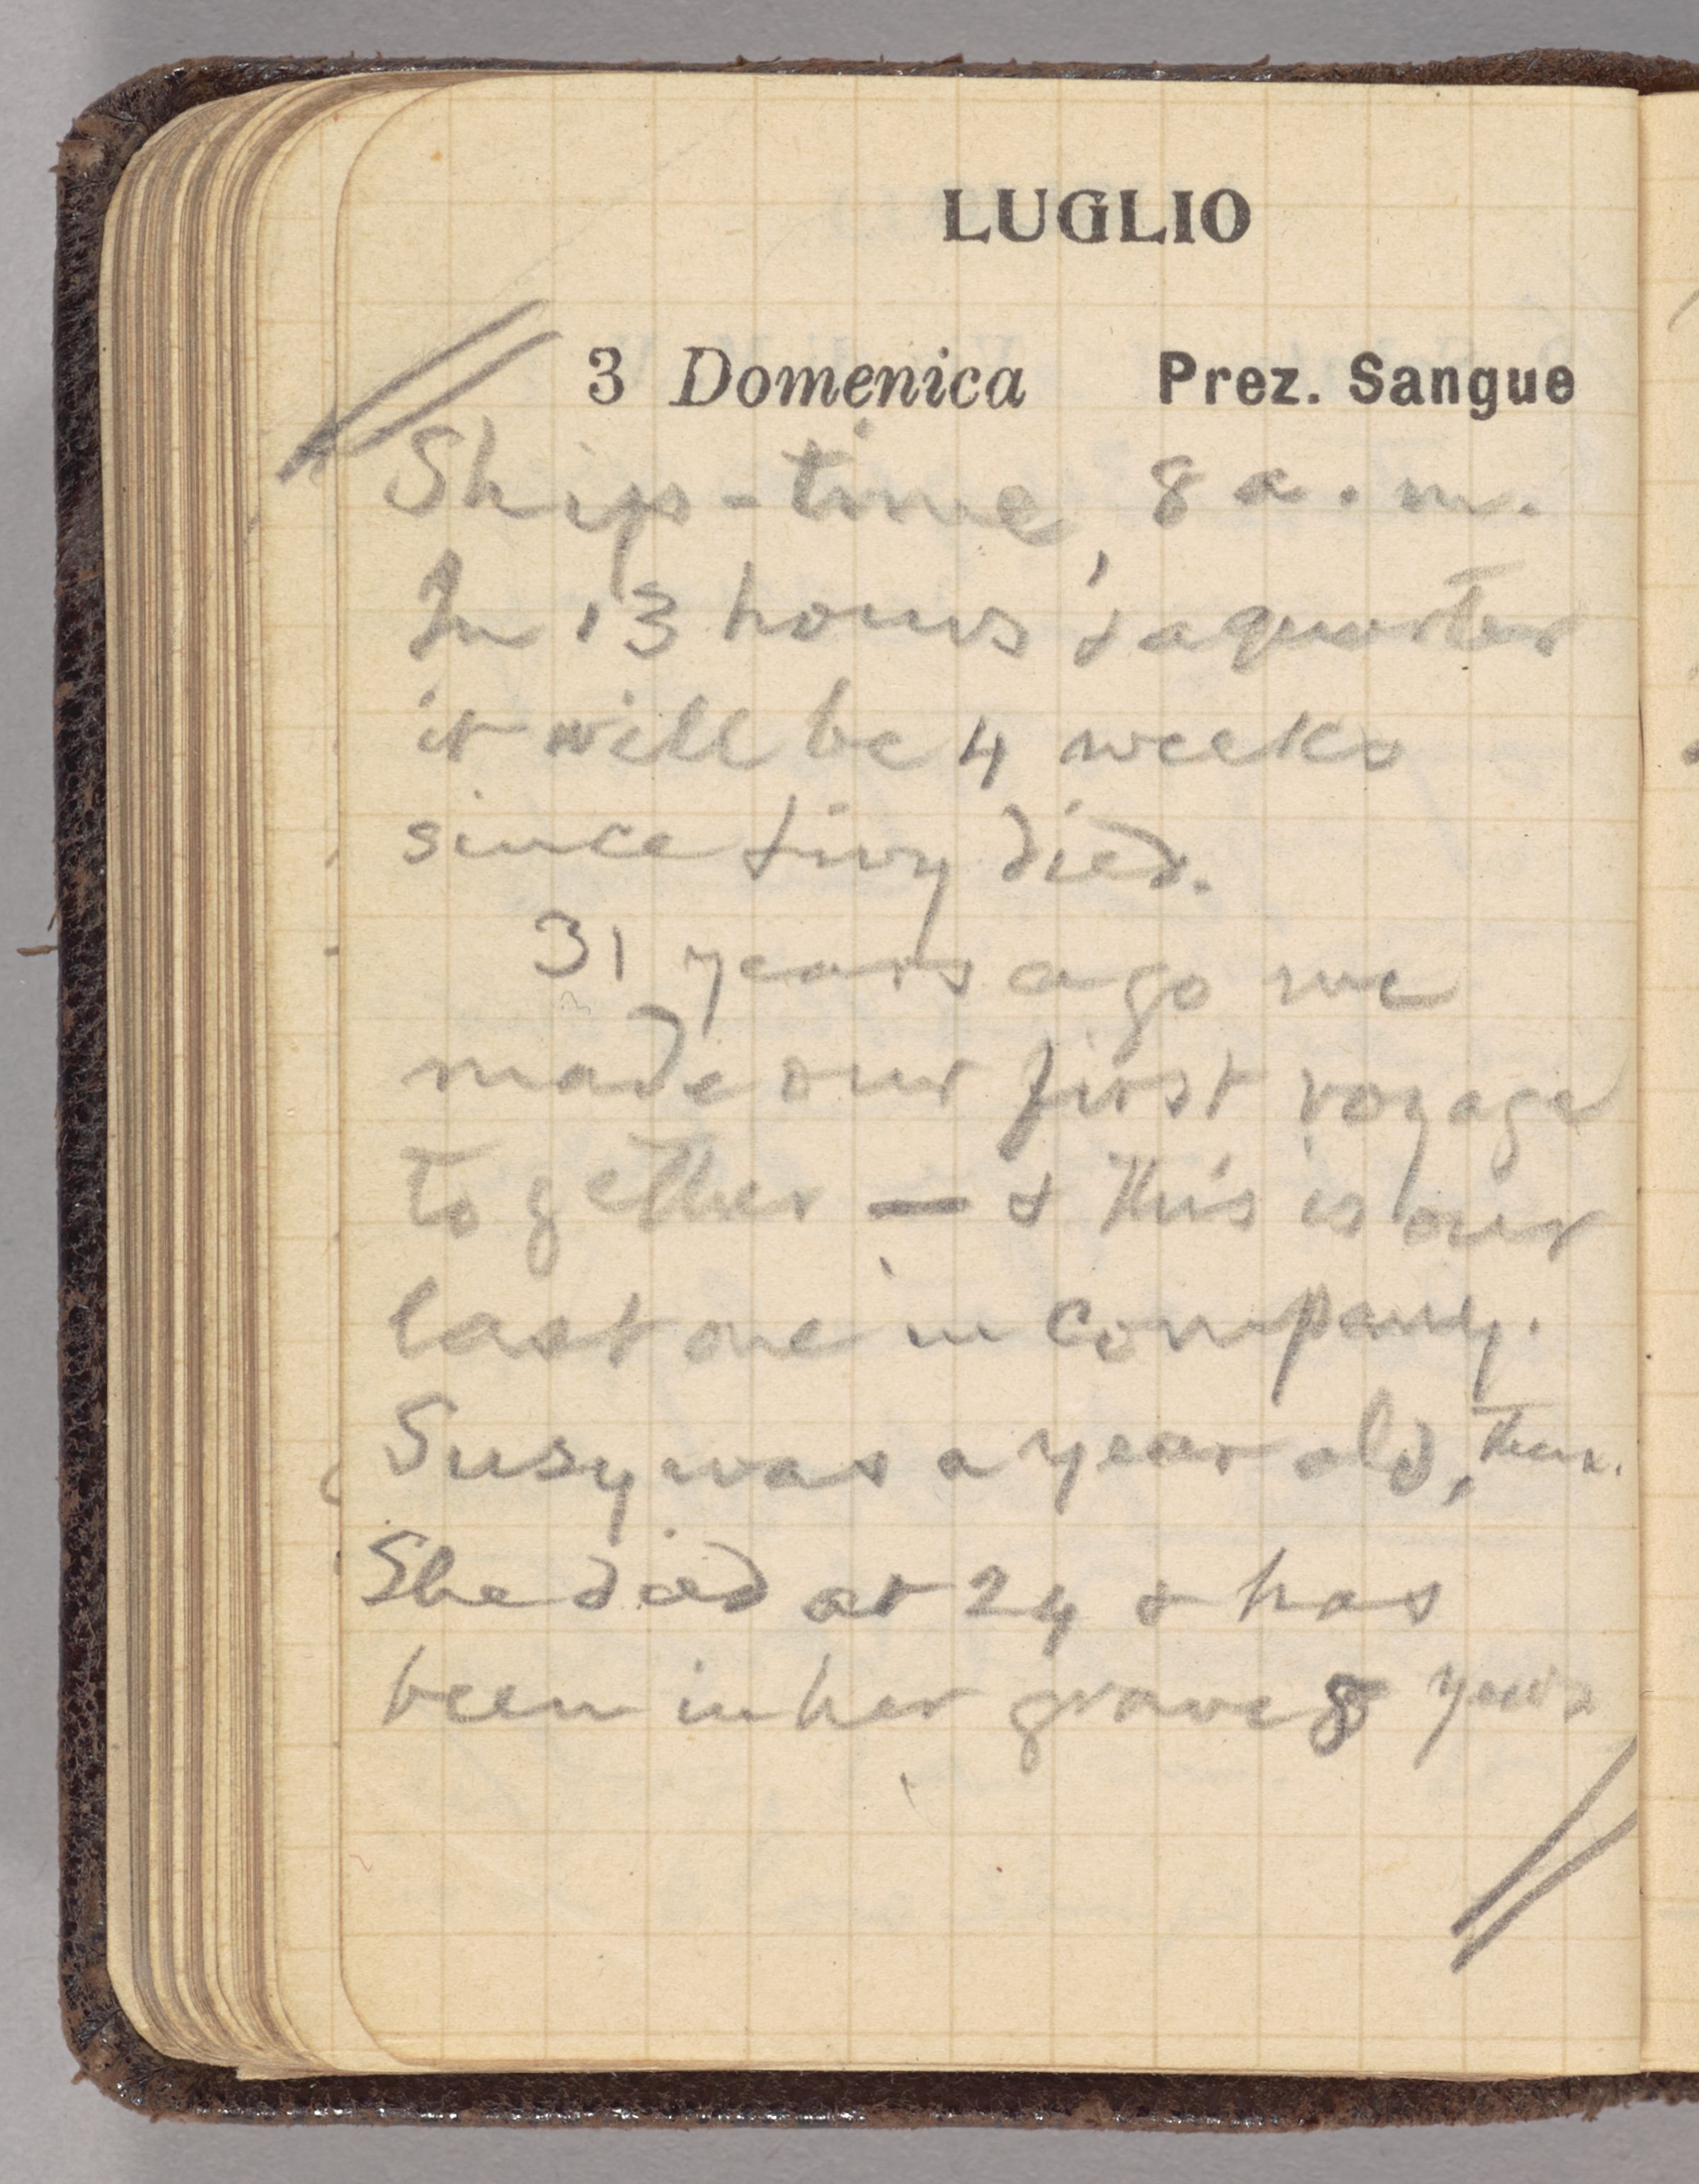 LUGLIO
3 Domenica Prez. Sangue
Ship-time, 8 a.m.
In 13 hours & a quarter
it will be 4 weeks
since Livy died.
31 years ago we
made our first voyage
together — & this is our
last one in company.
Susy was a year old, then.
She died at 24 & has
been in her grave 8 years